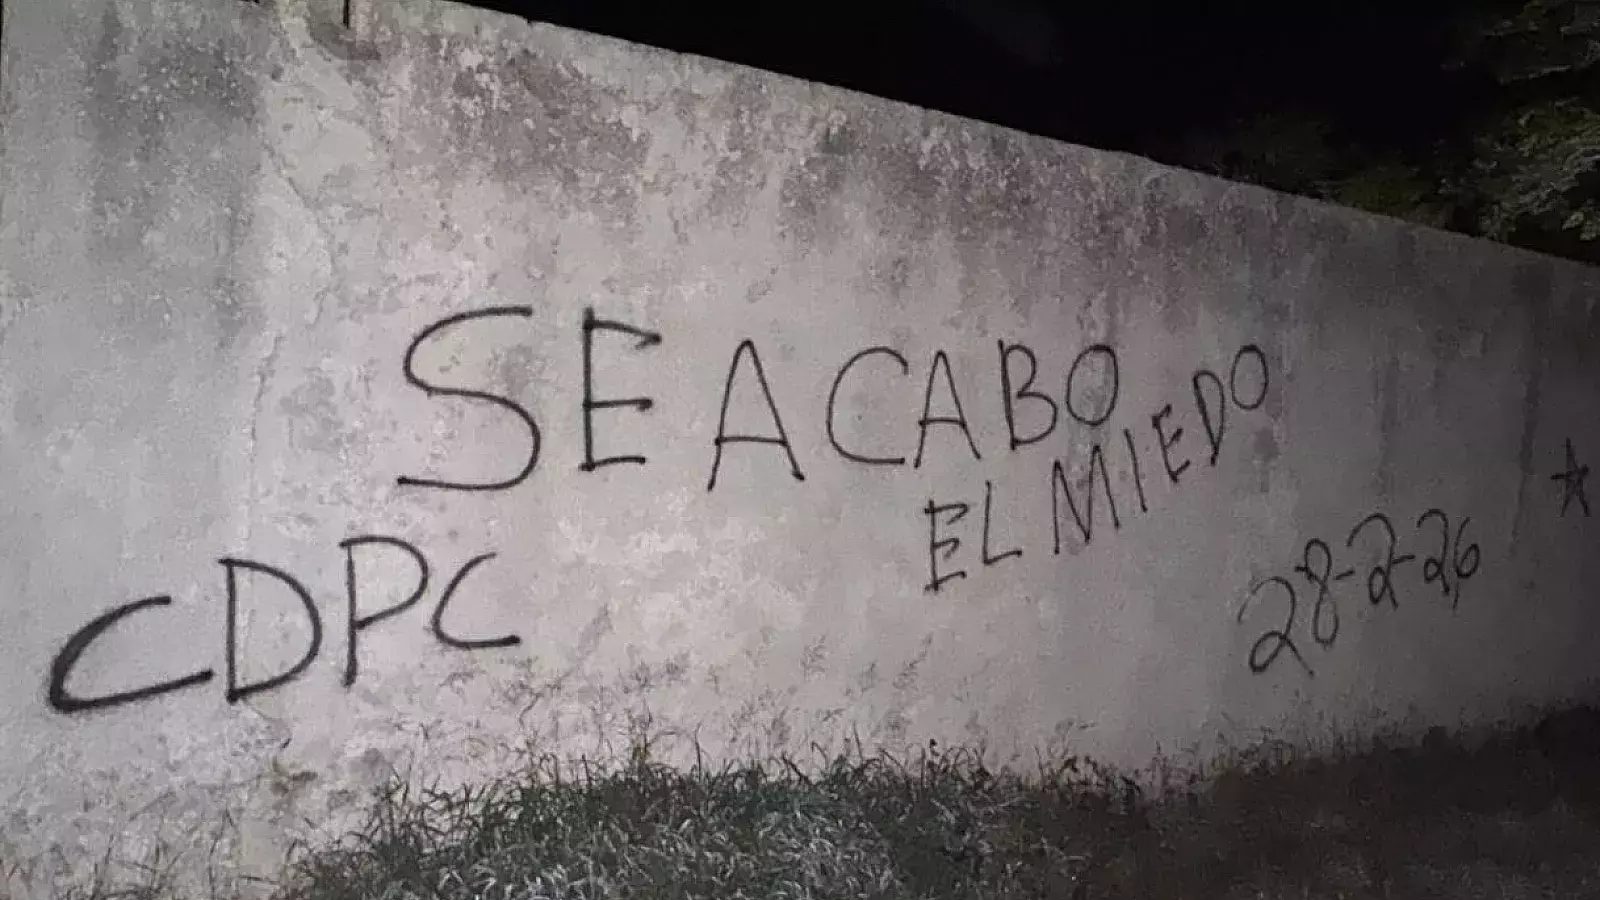 SE ACABO
EL MIEDO
CDPC
28-2-26